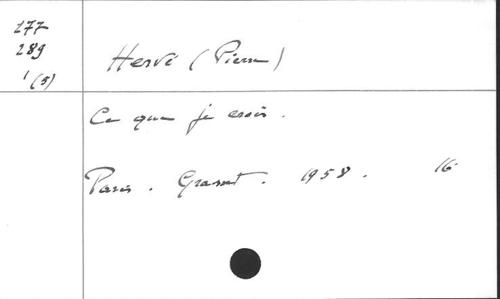 277
289
1 (5)
Hervé (Pierre)
Ce que je crois.
Paris. Grasset. 1958. 16°